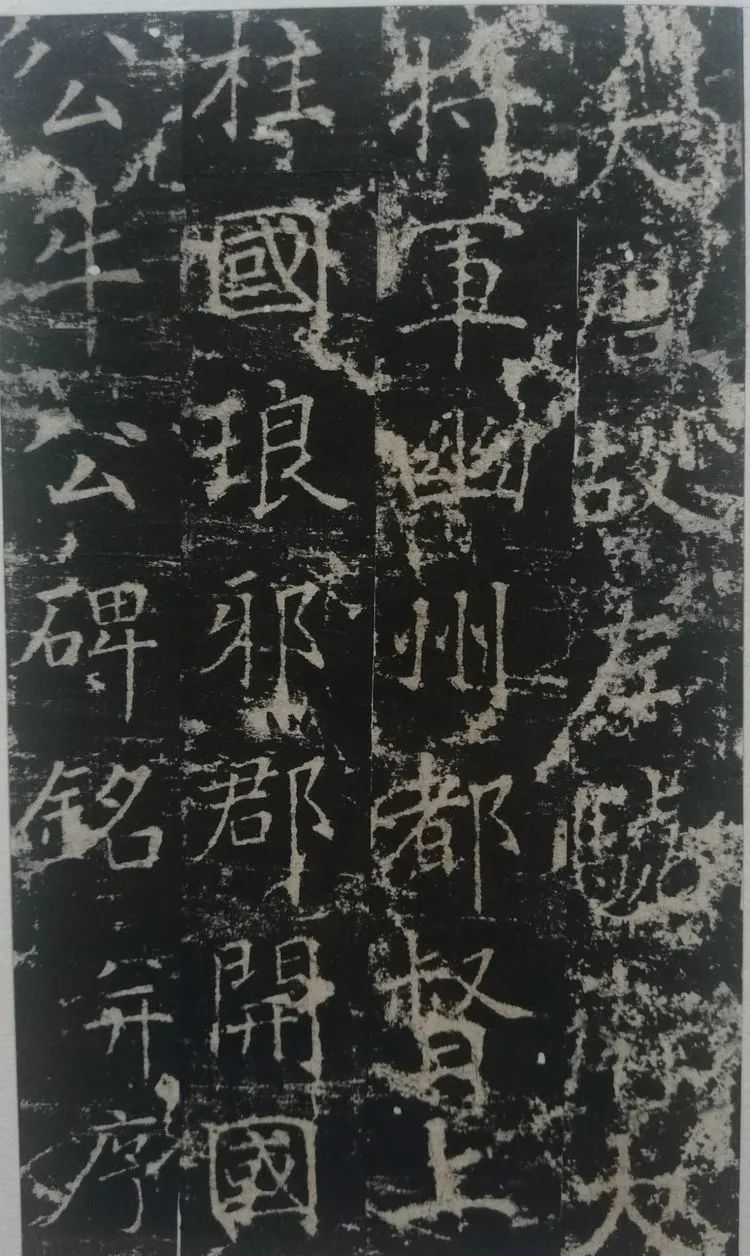 大唐故左驍衛大
將軍幽州都督上
柱國琅邪郡開國
公牛公碑銘并序